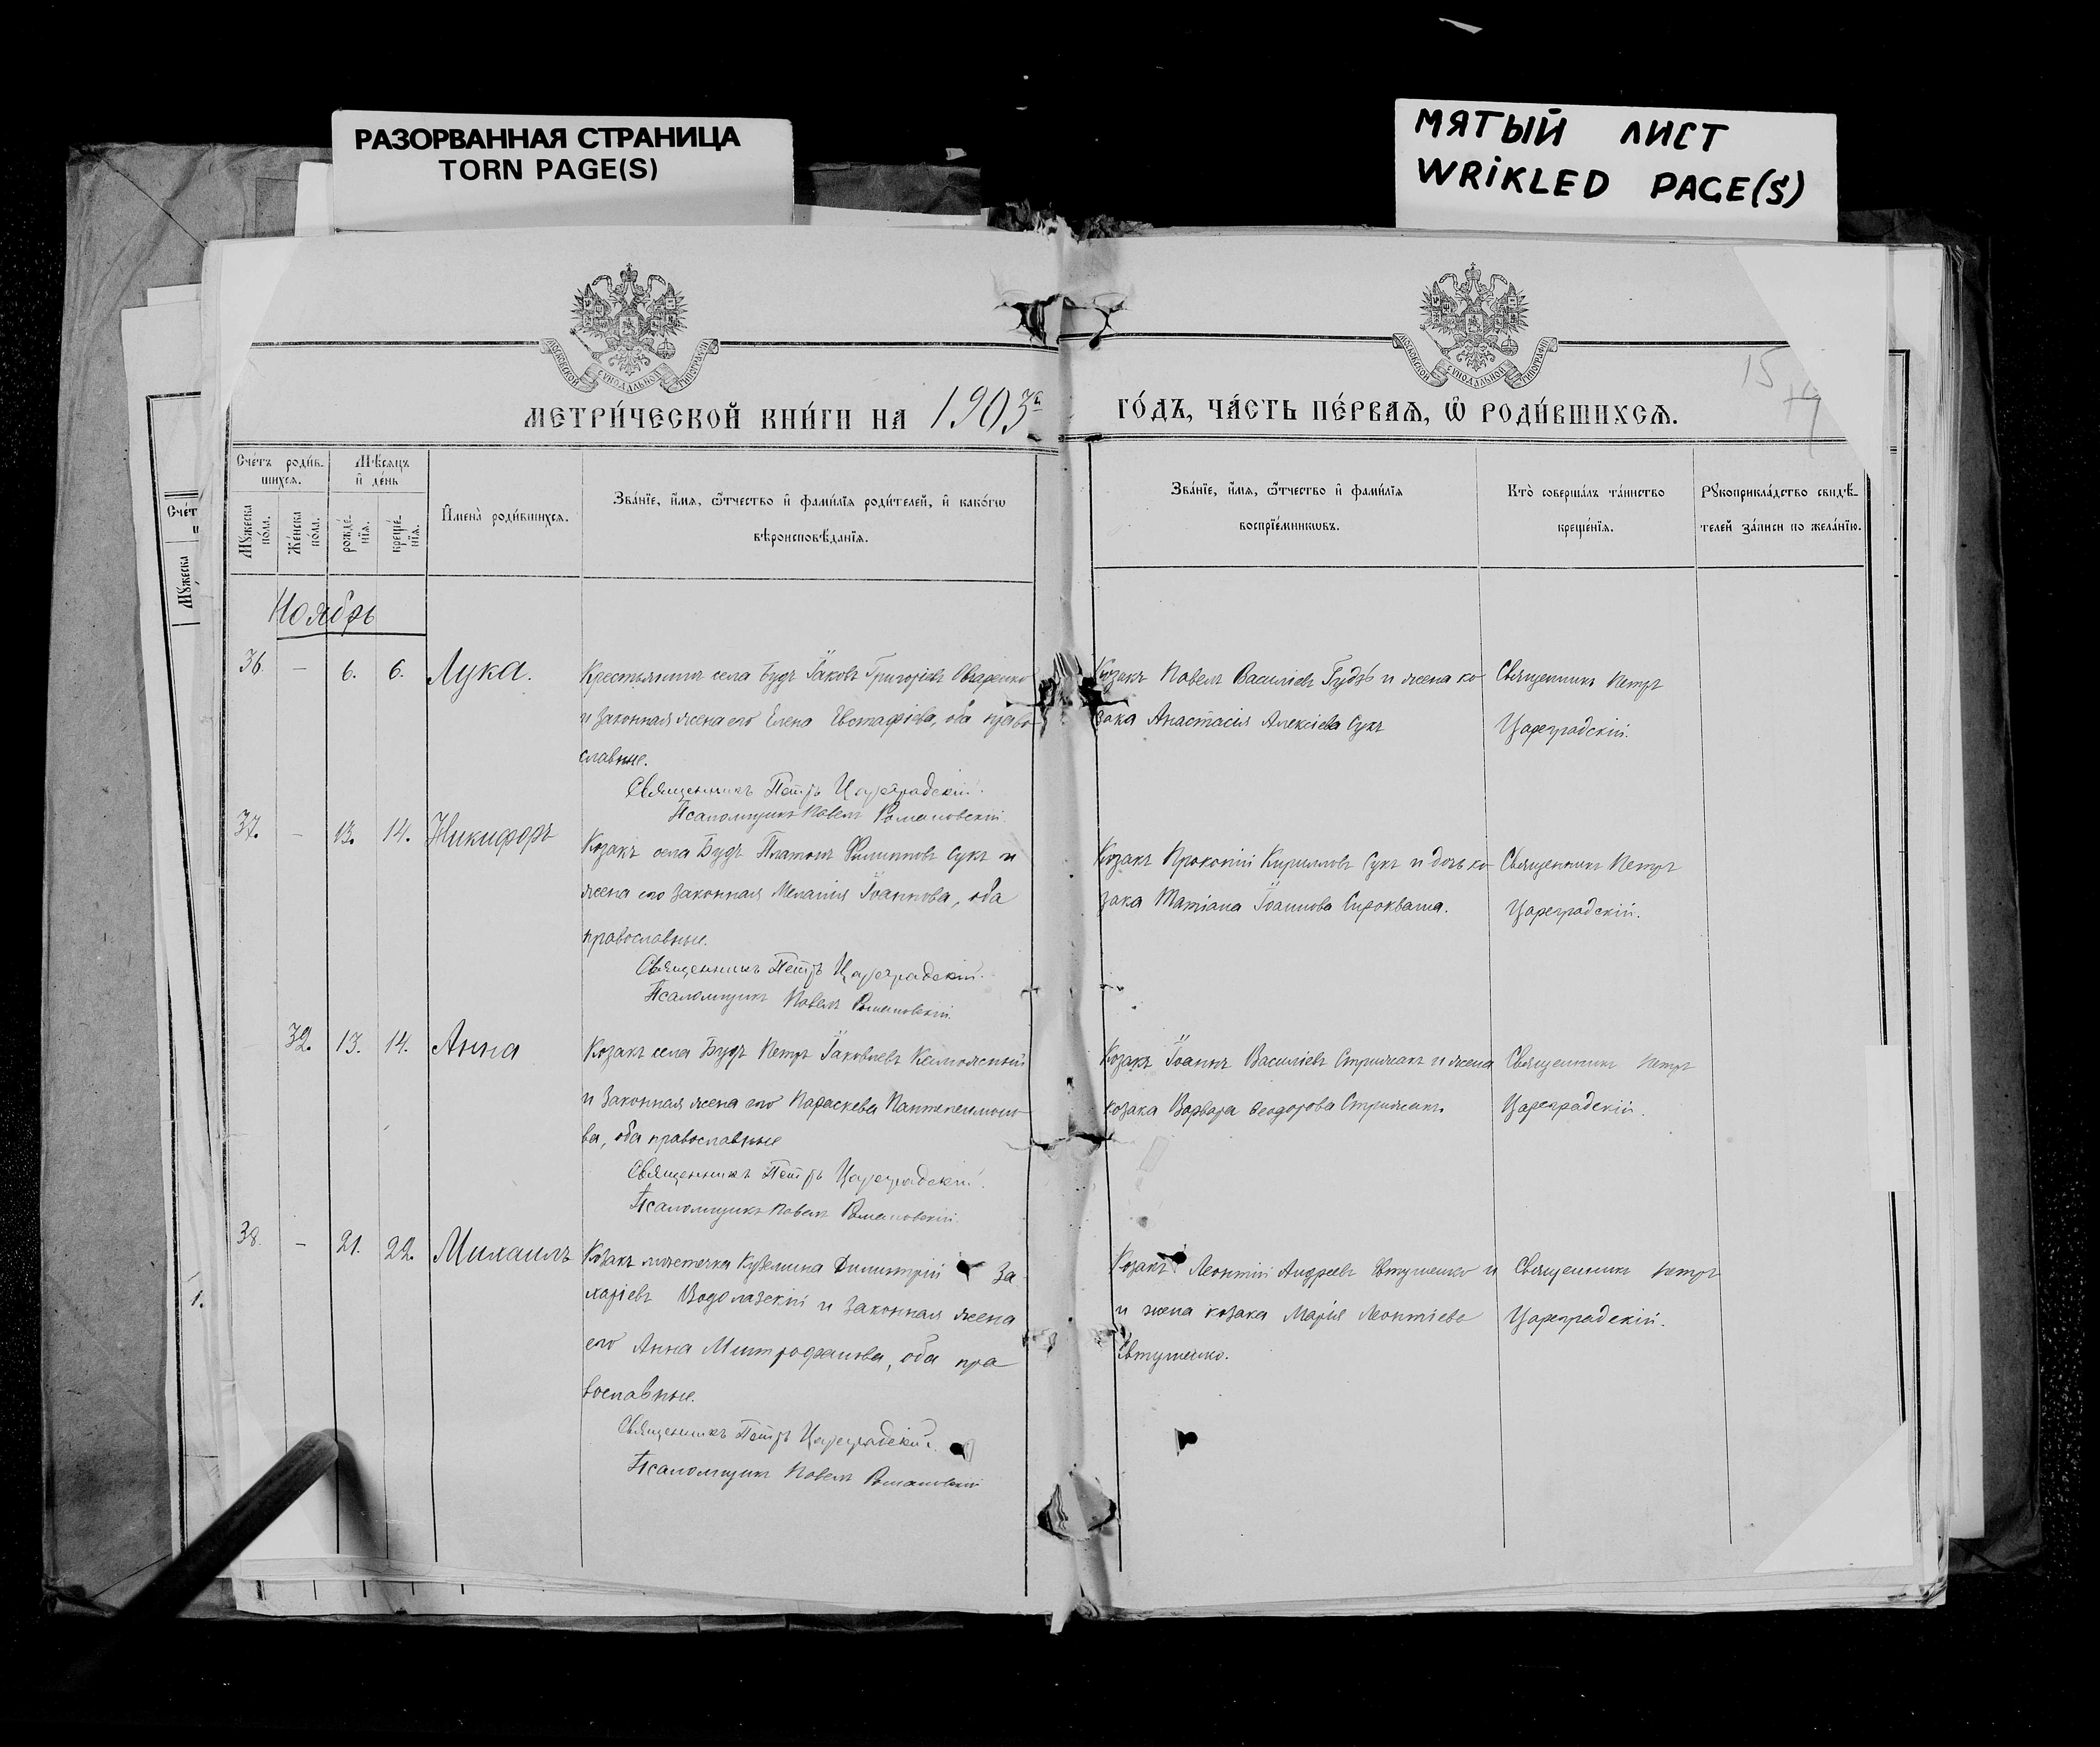 РАЗОРВАННАЯ СТРАНИЦА
TORN PAGE(S)
МЯТЫЙ ЛИСТ
WRIKLED PAGE(S)
МОСКОВСКОЙ СѴНОДАЛЬНОЙ ТИПОГРАФІИ
МОСКОВСКОЙ СѴНОДАЛЬНОЙ ТИПОГРАФІИ
15
МЕТРИ́ЧЕСКОЙ КНИ́ГИ НА 1903й
ГО́ДЪ, ЧА́СТЬ ПЕ́РВАѦ, Ѡ҆ РОДИ́ВШИХСѦ.
Сче́тъ роди́в-
шихсѧ.
Мѣ́сѧцъ
и҆ де́нь
Мꙋ́жеска по́ла.
Же́нска по́ла.
рожде́-
нїѧ.
креще́-
нїѧ.
И҆мена̀ роди́вшихсѧ.
Зва́нїе, и҆́мѧ, ѻ҆́тчество и҆ фами́лїѧ роди́телей, и҆ како́гѡ
вѣроисповѣ́данїѧ.
Зва́нїе, и҆́мѧ, ѻ҆́тчество и҆ фами́лїѧ
воспрїе́мникѡвъ.
Кто̀ соверша́лъ та́инство
креще́нїѧ.
Рꙋкоприкла́дство свидѣ́-
телей за́писи по жела́нїю.
Сче́т
Мꙋ́жеска
Ноябрь
36. — 6. 6. Лука.
Крестьянинъ села Будъ Іаковъ Григоріевъ Овчаренко
и законная жена его Елена Евстафіева, оба право-
славные.
Священникъ Петръ Цареградскій.
Псаломщикъ Павелъ Романовскій.
Козакъ Павелъ Василіевъ Гудзь и жена ко-
зака Анастасія Алексіева Сукъ
Священникъ Петръ
Цареградскій.
37. — 13. 14. Никифоръ
Козакъ села Будъ Платонъ Филиповъ Сукъ и
жена его законная Меланія Іоаннова, оба
православные.
Священникъ Петръ Цареградскій.
Псаломщикъ Павелъ Романовскій.
Козакъ Прокопій Кирилловъ Сукъ и дочь ко-
зака Татіана Іоаннова Сирокваша.
Священникъ Петръ
Цареградскій.
32. 13. 14. Анна
Козакъ села Будъ Петръ Іаковлевъ
и законная жена его Параскева Пантелеимоно-
ва, оба православные
Священникъ Петръ Цареградскій.
Псаломщикъ Павелъ Романовскій.
Козакъ Іоаннъ Василіевъ Стрижакъ и жена
козака Варвара Ѳеодорова Стрижакъ
Священникъ Петръ
Цареградскій.
38. — 21. 22. Михаилъ
Козакъ мѣстечка Куземина Димитрій За-
харіевъ Водолазскій и законная жена
его Анна Митрофанова, оба пра
вославные.
Священникъ Петръ Цареградскій.
Псаломщикъ Павелъ Романовскій
Козакъ Леонтій Андреевъ Евтушенко и
и жена козака Марія Леонтіева
Евтушенко.
Священникъ Петръ
Цареградскій.
1.